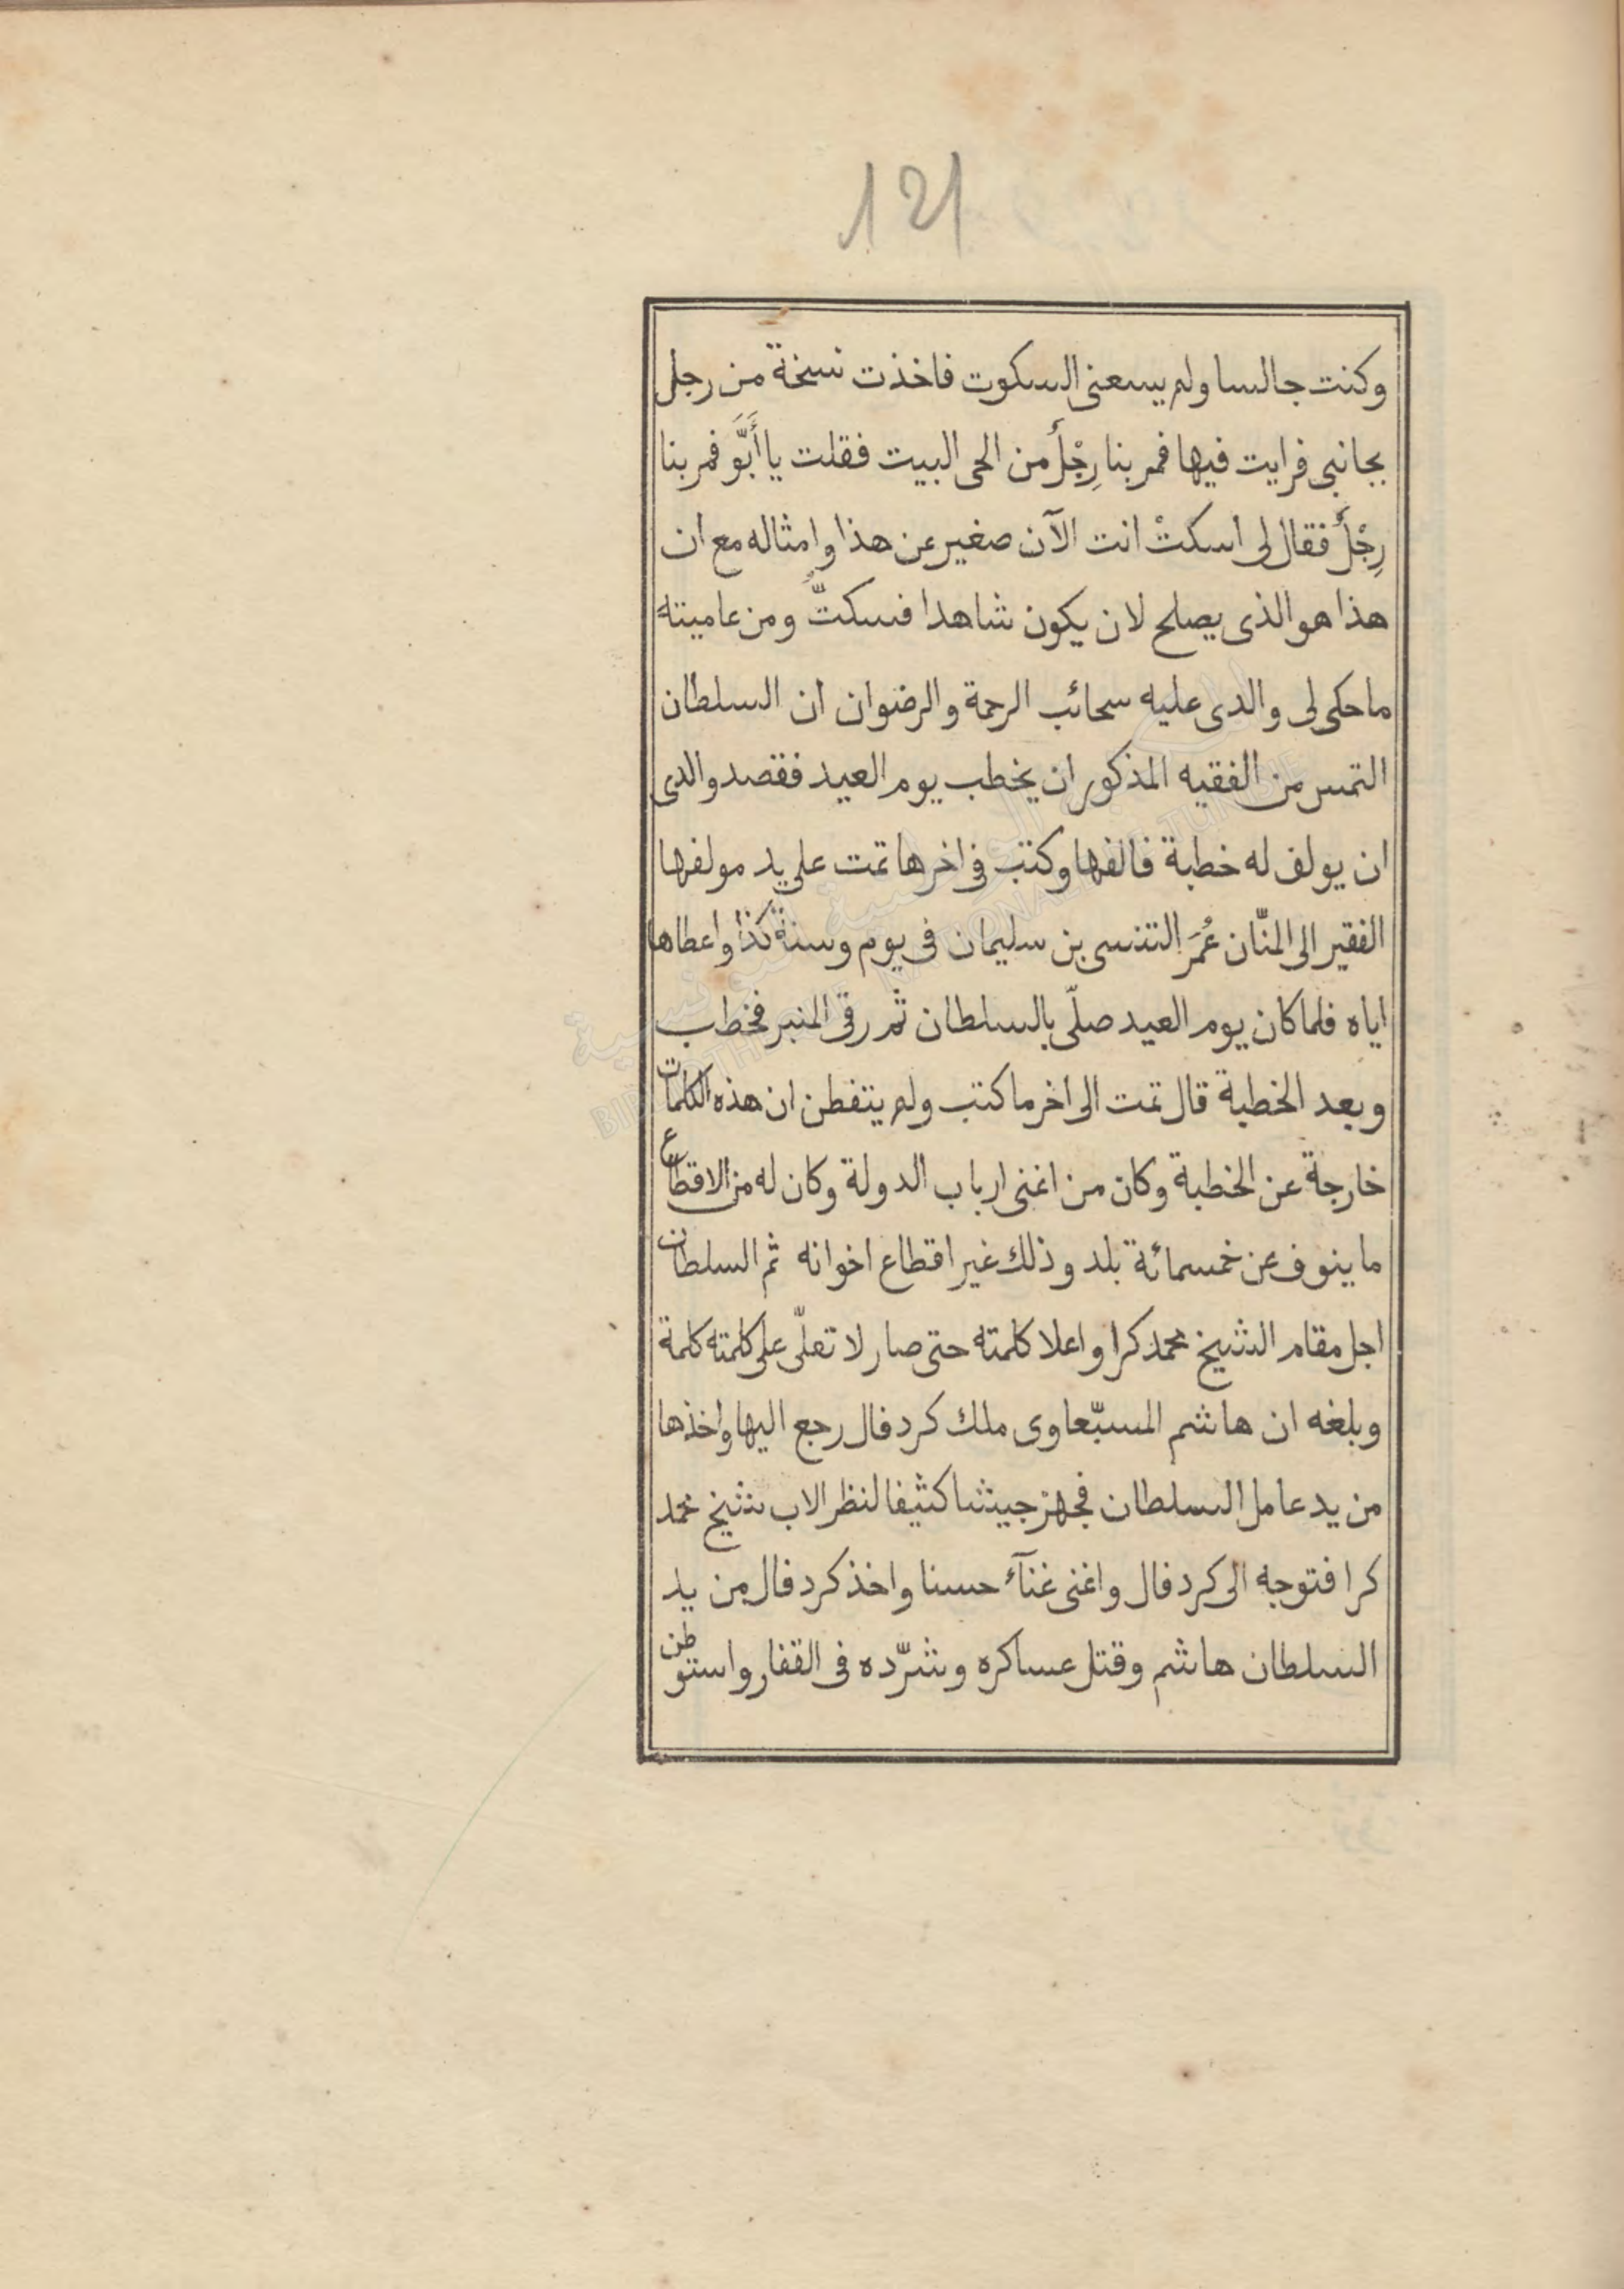 121
وكنت جالسا ولم يسعنى السكوت فاخذت نسخة من رجل
بجانبى فرايت فيها فمر بنا رِجْلٌ من الحى البيت فقلت يا أَبَّو فمر بنا
رِجْلٌ فقال لى اسكتْ انت الآن صغير عن هذا وامثاله مع ان
هذا هو الذى يصلح لان يكون شاهدا فسكتُّ ومن عاميته
ما حكى لى والدى عليه سحائب الرحمة والرضوان ان السلطان
التمس من الفقيه المذكور ان يخطب يوم العيد فقصد والدى
ان يولف له خطبة فالفها وكتب فى اخرها تمت على يد مولفها
الفقير الى المنّان عُمَر التنسى بن سليمان فى يوم وسنة كذا واعطاها
اياه فلما كان يوم العيد صلّى بالسلطان ثم رقى المنبر فخطب
وبعد الخطبة قال تمت الى اخر ما كتب ولم يتفطن ان هذه الكلمات
خارجة عن الخطبة وكان من اغنى ارباب الدولة وكان له من الاقطاع
ما ينوف عن خمسمائة بلد وذلك غير اقطاع اخوانه ثم السلطان
اجل مقام الشيخ محمد كرا واعلا كلمته حتى صار لا تعلّى على كلمته كلمة
وبلغه ان هاشم المسبّعاوى ملك كردفال رجع اليها واخذها
من يد عامل السلطان فجهز جيشا كثيفا لنظر الاب شيخ محمد
كرا فتوجه الى كردفال واغنى غنآء حسنا واخذ كردفال من يد
السلطان هاشم وقتل عساكره وشرّده فى القفار واستوطن
BIBLIOTHEQUE NATIONALE DE TUNISIE